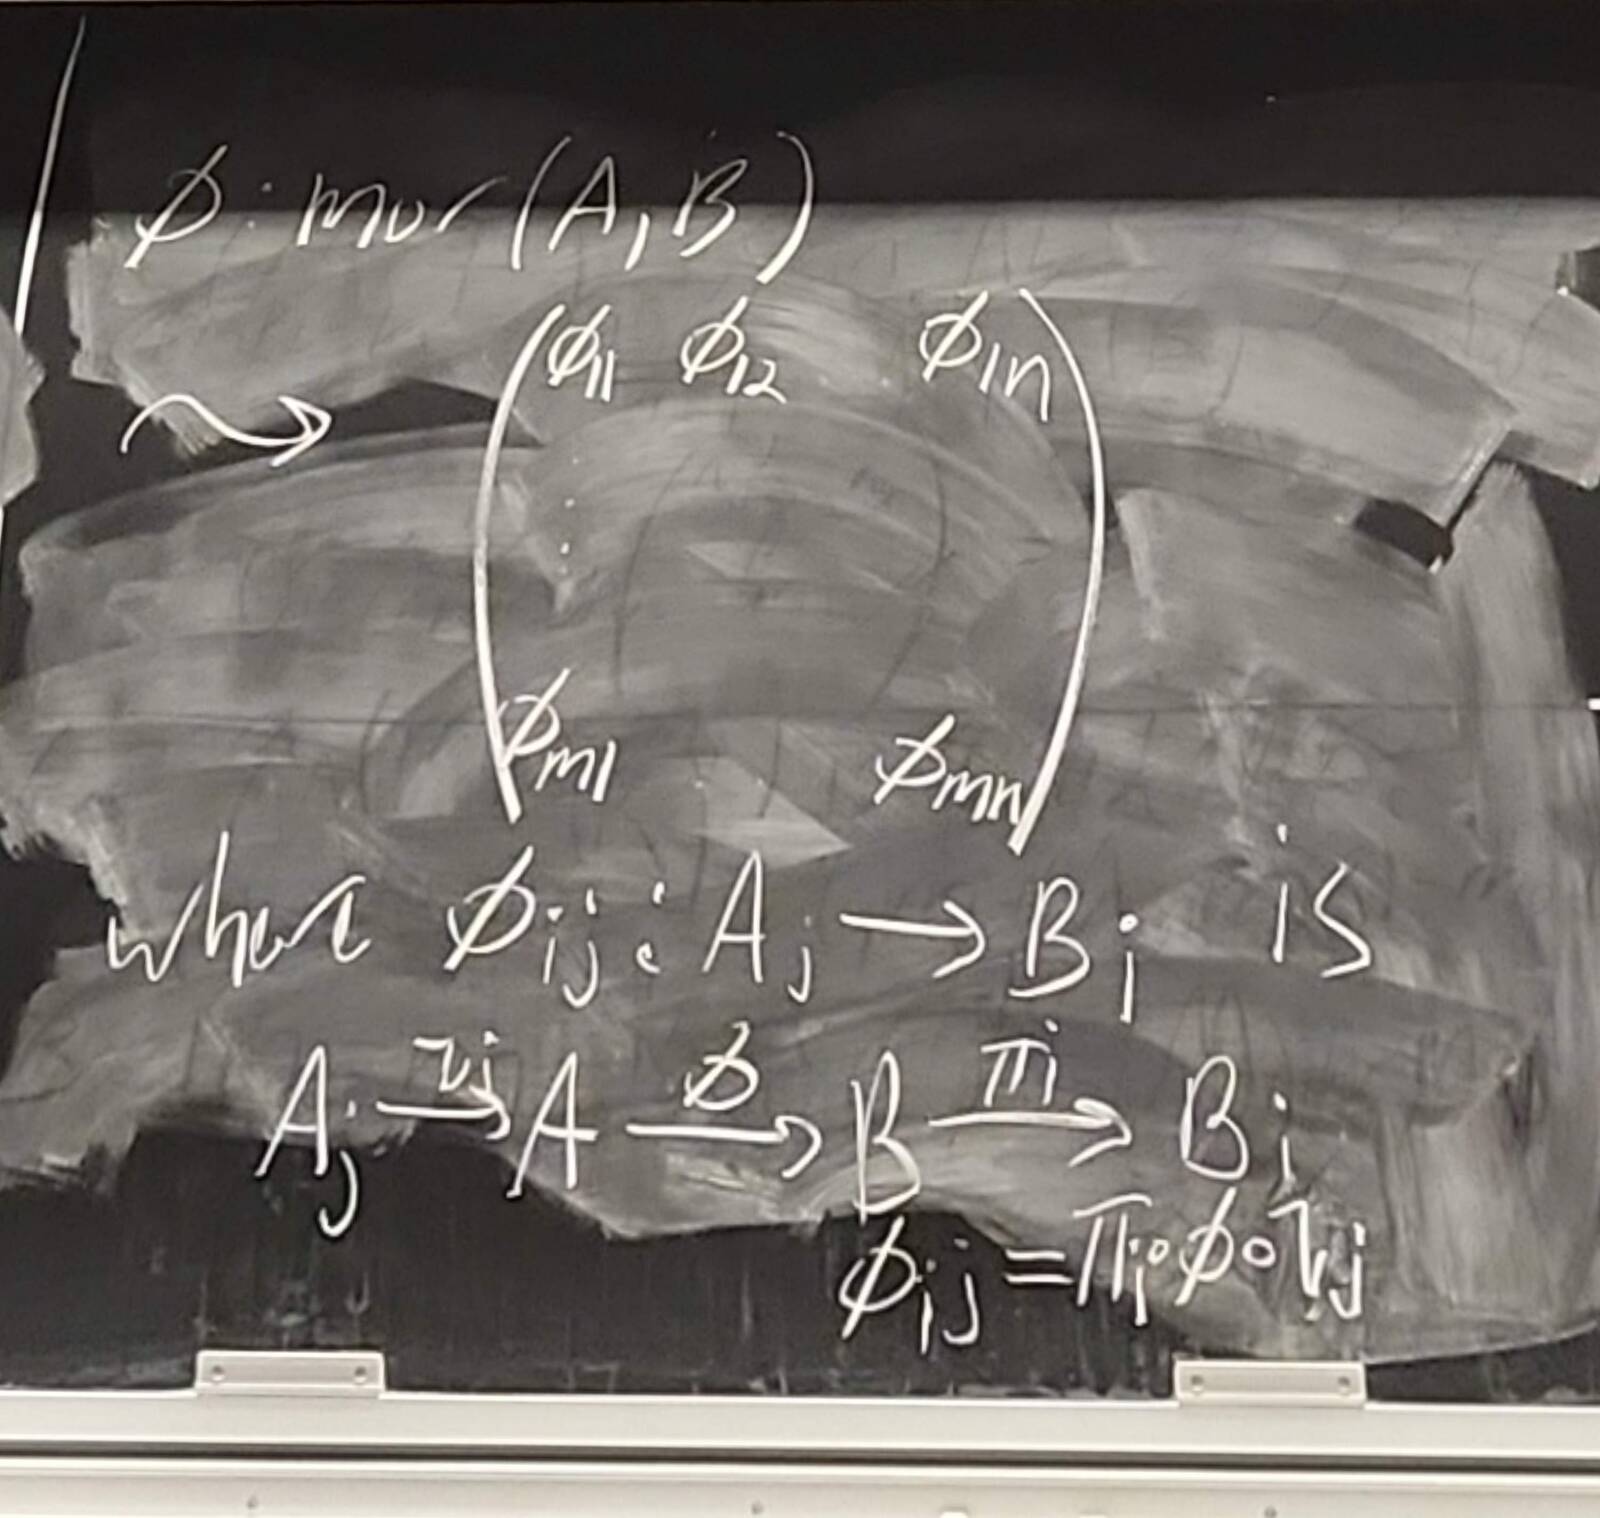 ϕ : mor (A, B)
ϕ₁₁ ϕ₁₂ ϕ₁ₙ
⇝
ϕₘ₁ ϕₘₙ
where ϕᵢⱼ : Aⱼ → Bᵢ is
Aⱼ —ιⱼ→ A —ϕ→ B —πᵢ→ Bᵢ
ϕᵢⱼ = πᵢ∘ϕ∘ιⱼ